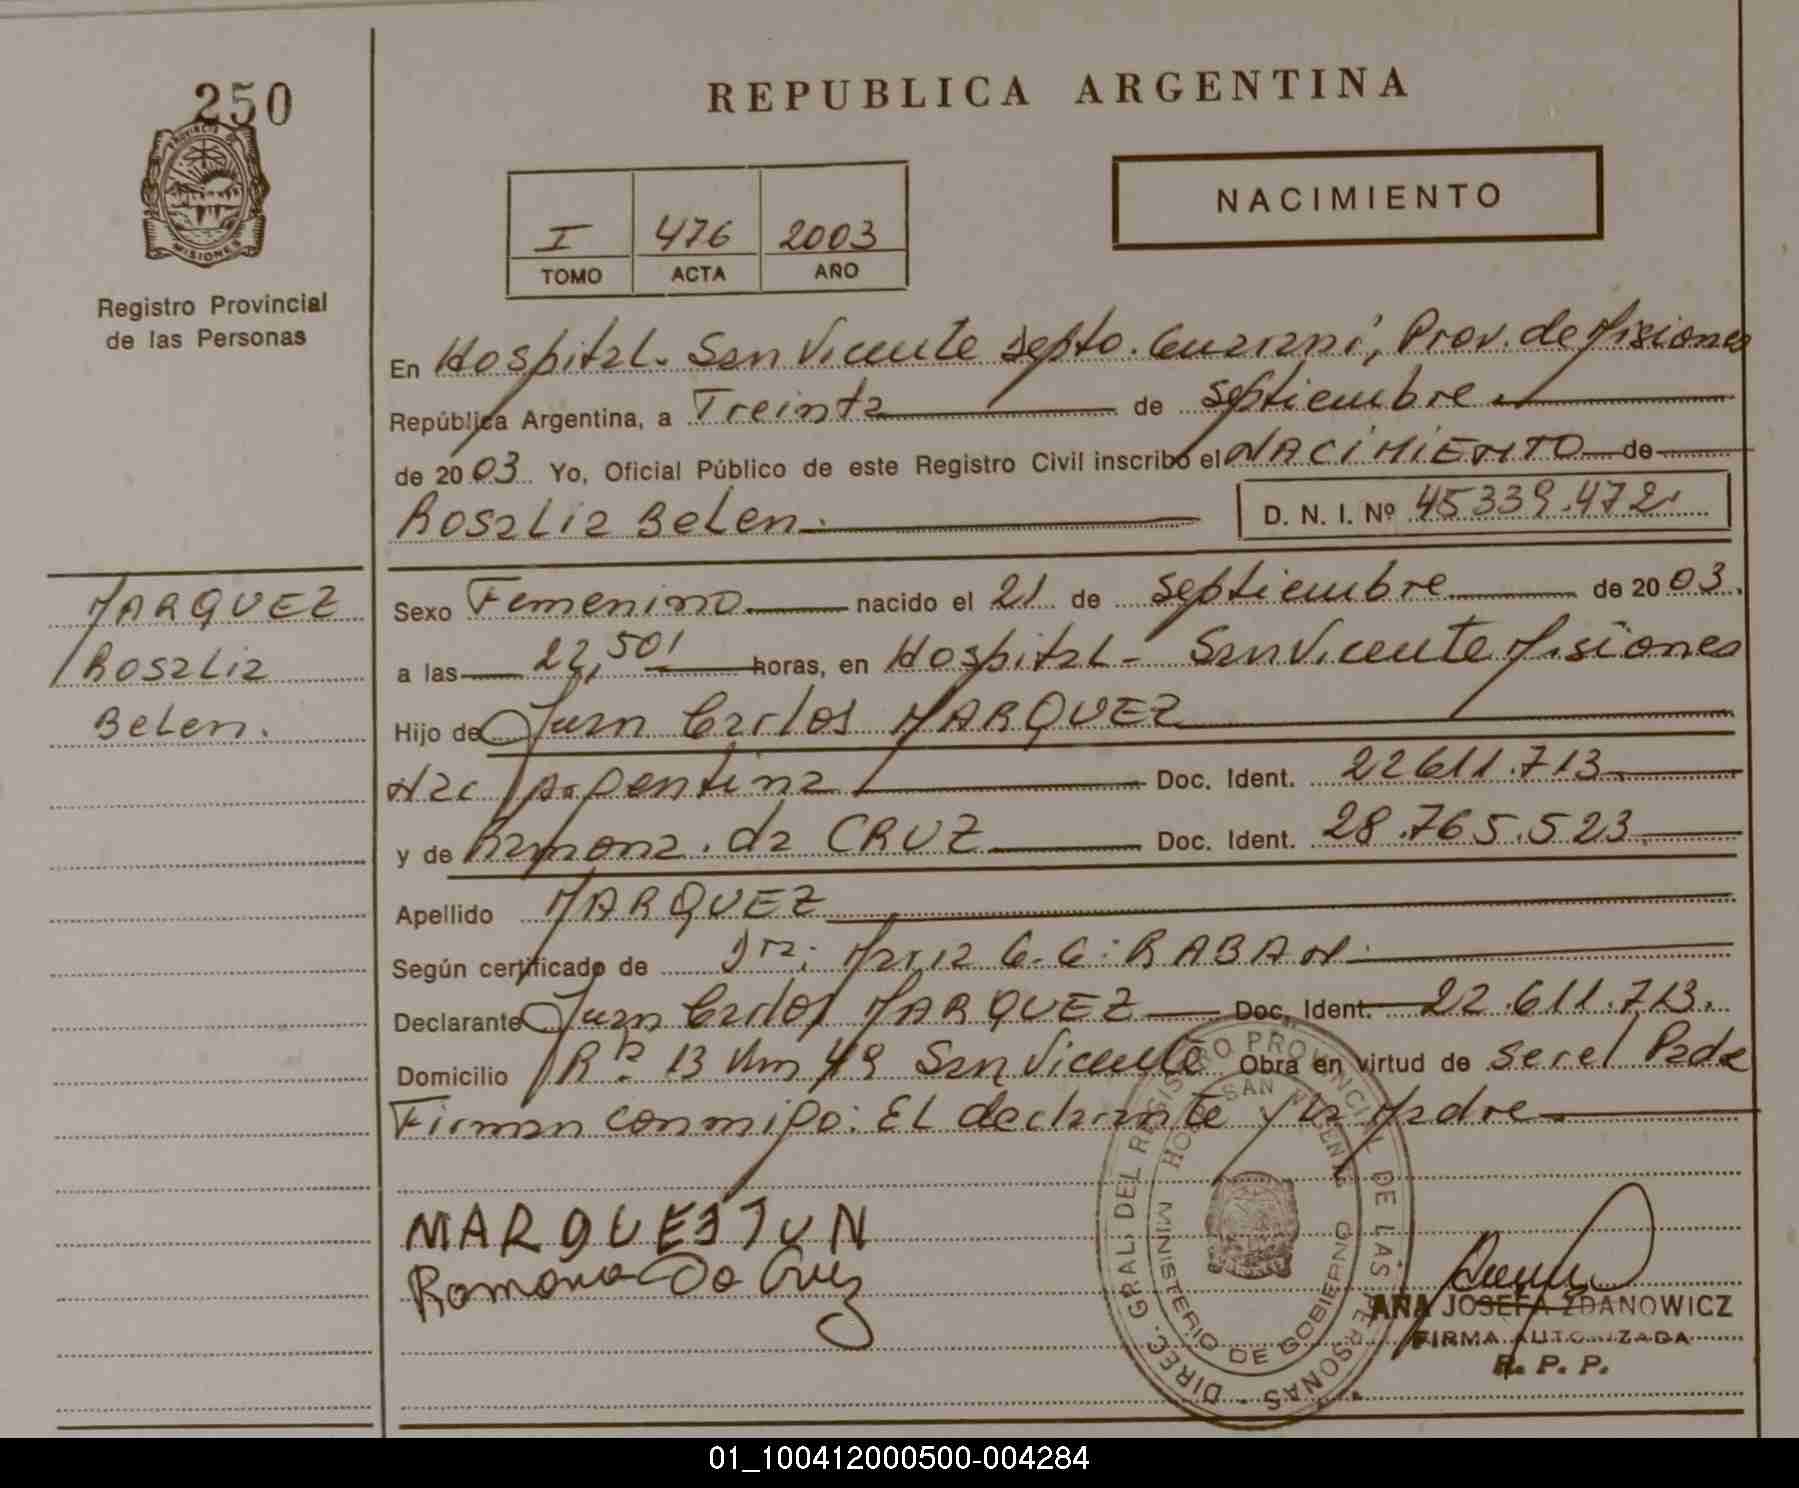 250
REPUBLICA ARGENTINA
PROVINCIA DE MISIONES
Registro Provincial
de las Personas
I 476 2003
TOMO ACTA AÑO
NACIMIENTO
En Hospital - San Vicente Depto. Guarani, Prov. de Misiones
República Argentina, a Treinta de Septiembre
de 2003. Yo, Oficial Público de este Registro Civil inscribo el NACIMIENTO de
Rosalia Belen. D. N. I. Nº 45339.472
MARQUEZ
Rosalia
Belen.
Sexo Femenino nacido el 21 de Septiembre de 2003.
a las 22,50' horas, en Hospital - San Vicente Misiones
Hijo de Juan Carlos MARQUEZ
Nac. Argentina Doc. Ident. 22611.713
y de Ramona. da CRUZ Doc. Ident. 28.765.523
Apellido MARQUEZ
Según certificado de Dra: Maria C.C: RABAN
Declarante Juan Carlos MARQUEZ Doc. Ident. 22.611.713.
Domicilio Rta 13 Km 49 San Vicente Obra en virtud de ser el Padre
Firman conmigo: El declarante y la Madre
MARQUES JUN
Ramona Da Cruz
DIREC. GRAL. DEL REGISTRO PROVINCIAL DE LAS PERSONAS
SAN VICENTE
MINISTERIO DE GOBIERNO
ANA JOSEFA ZDANOWICZ
FIRMA AUTORIZADA
R. P. P.
01_100412000500-004284